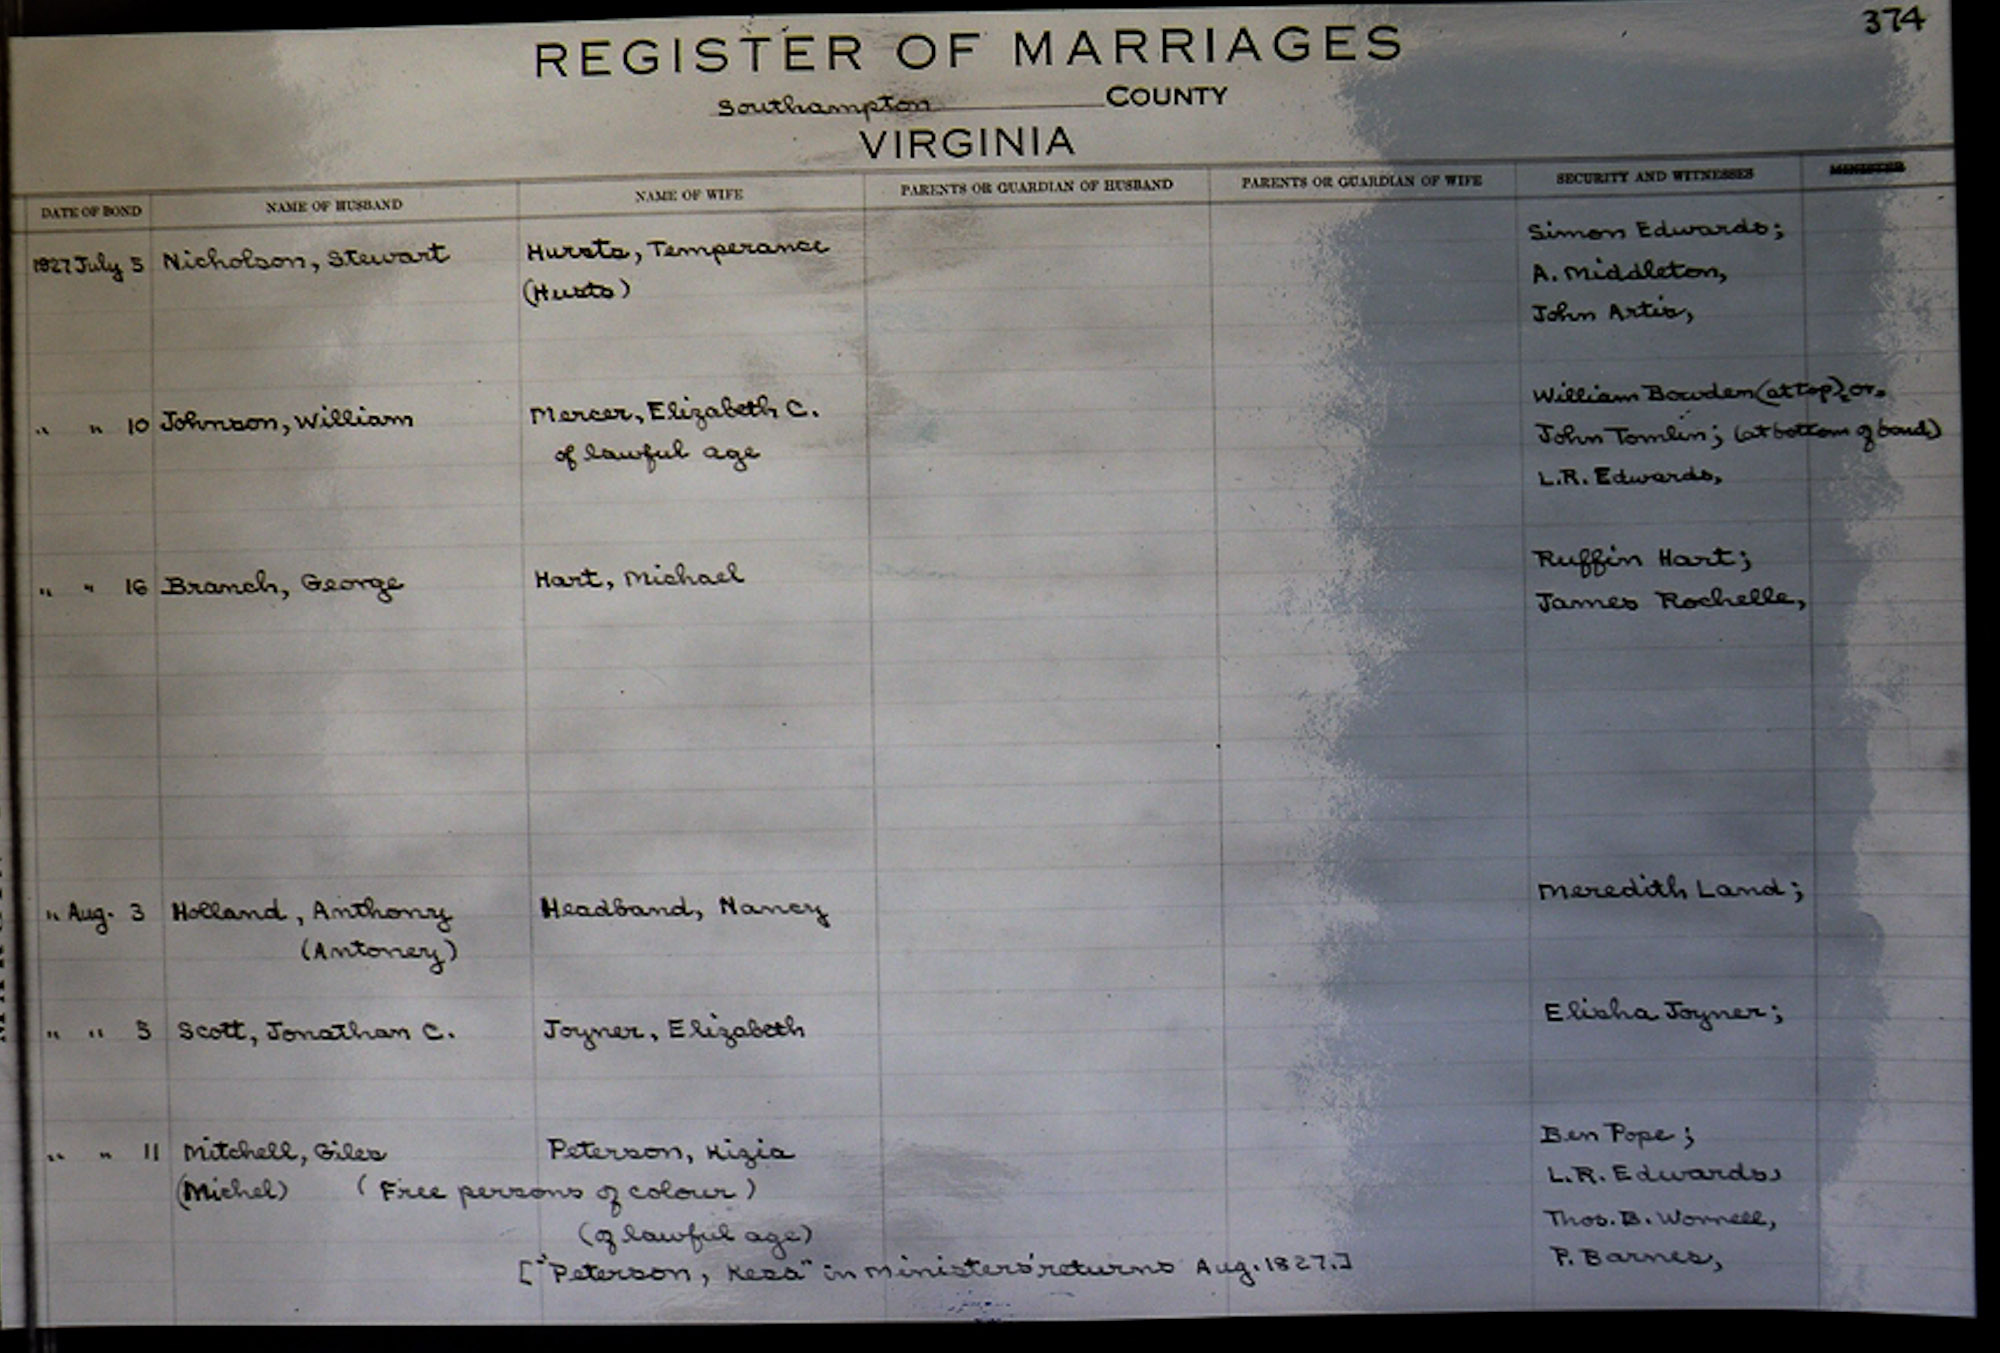 374
REGISTER OF MARRIAGES
Southampton COUNTY
VIRGINIA
DATE OF BOND NAME OF HUSBAND NAME OF WIFE PARENTS OR GUARDIAN OF HUSBAND PARENTS OR GUARDIAN OF WIFE SECURITY AND WITNESSES MINISTER
1827 July 5 Nicholson, Stewart Hursta, Temperance Simon Edwards;
(Husto) A. Middleton,
John Artis,
" " 10 Johnson, William Mercer, Elizabeth C. William Bowden (at top), or.
of lawful age John Tomlin; (at bottom of bond)
L.R. Edwards,
" " 16 Branch, George Hart, Michael Ruffin Hart;
James Rochelle,
" Aug. 3 Holland, Anthony Headband, Nancy Meredith Land;
(Antoney)
" " 5 Scott, Jonathan C. Joyner, Elizabeth Elisha Joyner;
" " 11 Mitchell, Giles Peterson, Kizia Ben Pope;
(Michel) (Free persons of colour) L.R. Edwards,
(of lawful age) Thos. B. Worrell,
["Peterson, Kesa" in Ministers' returns Aug. 1827.] P. Barnes,